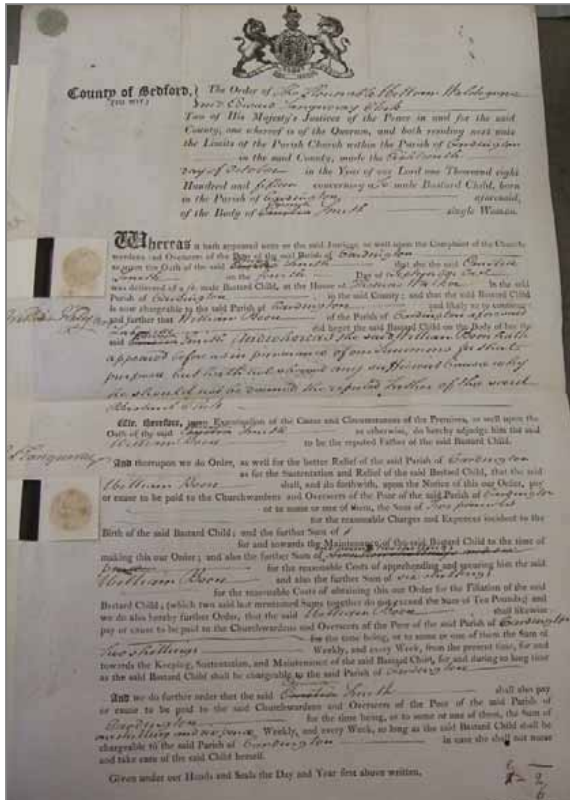 County of Bedford, The Order of The Honorable William Waldegrave
(TO WIT) and Edward Tanqueray Clerk
Two of His Majesty's Justices of the Peace in and for the said
County, one whereof is of the Quorum, and both residing next unto
the Limits of the Parish Church within the Parish of Cardington
in the said County, made the
day of October in the Year of our Lord one Thousand eight
Hundred and fifteen concerning a male Bastard Child, born
in the Parish of Cardington aforesaid,
of the Body of Smith single Woman.
Whereas it hath appeared unto us the said Justices, as well upon the Complaint of the Church-
wardens and Overseers of the Poor of the said Parish of Cardington
as upon the Oath of the said Smith that she the said
Smith on the Day of last
was delivered of a male Bastard Child, at the House of Thomas in the said
Parish of Cardington in the said County; and that the said Bastard Child
is now chargeable to the said Parish of Cardington and likely so to continue;
and further that William Boon of the Parish of Cardington aforesaid
Labourer did beget the said Bastard Child on the Body of her the
said Smith And whereas the said William Boon hath
appeared before us in pursuance of our Summons for that
purpose but hath not shewed any sufficient cause why
he should not be deemed the reputed Father of the said
Bastard Child
We, therefore, upon Examination of the Cause and Circumstances of the Premises, as well upon the
Oath of the said Smith as otherwise, do hereby adjudge him the said
William Boon to be the reputed Father of the said Bastard Child.
Tanqueray
And thereupon we do Order, as well for the better Relief of the said Parish of Cardington
as for the Sustentation and Relief of the said Bastard Child, that the said
William Boon shall, and do forthwith, upon the Notice of this our Order, pay
or cause to be paid to the Churchwardens and Overseers of the Poor of the said Parish of Cardington
or to some or one of them, the Sum of Two pounds
for the reasonable Charges and Expences incident to the
Birth of the said Bastard Child; and the further Sum of
for and towards the Maintenance of the said Bastard Child to the time of
making this our Order; and also the further Sum of
for the reasonable Costs of apprehending and securing him the said
William Boon and also the further Sum of six shillings
for the reasonable Costs of obtaining this our Order for the Filiation of the said
Bastard Child; (which two said last mentioned Sums together do not exceed the Sum of Ten Pounds) and
we do also hereby further Order, that the said William Boon shall likewise
pay or cause to be paid to the Churchwardens and Overseers of the Poor of the said Parish of Cardington
for the time being, or to some or one of them the Sum of
Two shillings Weekly, and every Week, from the present time, for and
towards the Keeping, Sustentation, and Maintenance of the said Bastard Child, for and during so long time
as the said Bastard Child shall be chargeable to the said Parish of Cardington
And we do further order that the said Smith shall also pay
or cause to be paid to the said Churchwardens and Overseers of the Poor of the said Parish of
Cardington for the time being, or to some or one of them, the Sum of
one shilling and six pence Weekly, and every Week, so long as the said Bastard Child shall be
chargeable to the said Parish of Cardington in case she shall not nurse
and take care of the said Child herself.
Given under our Hands and Seals the Day and Year first above written.